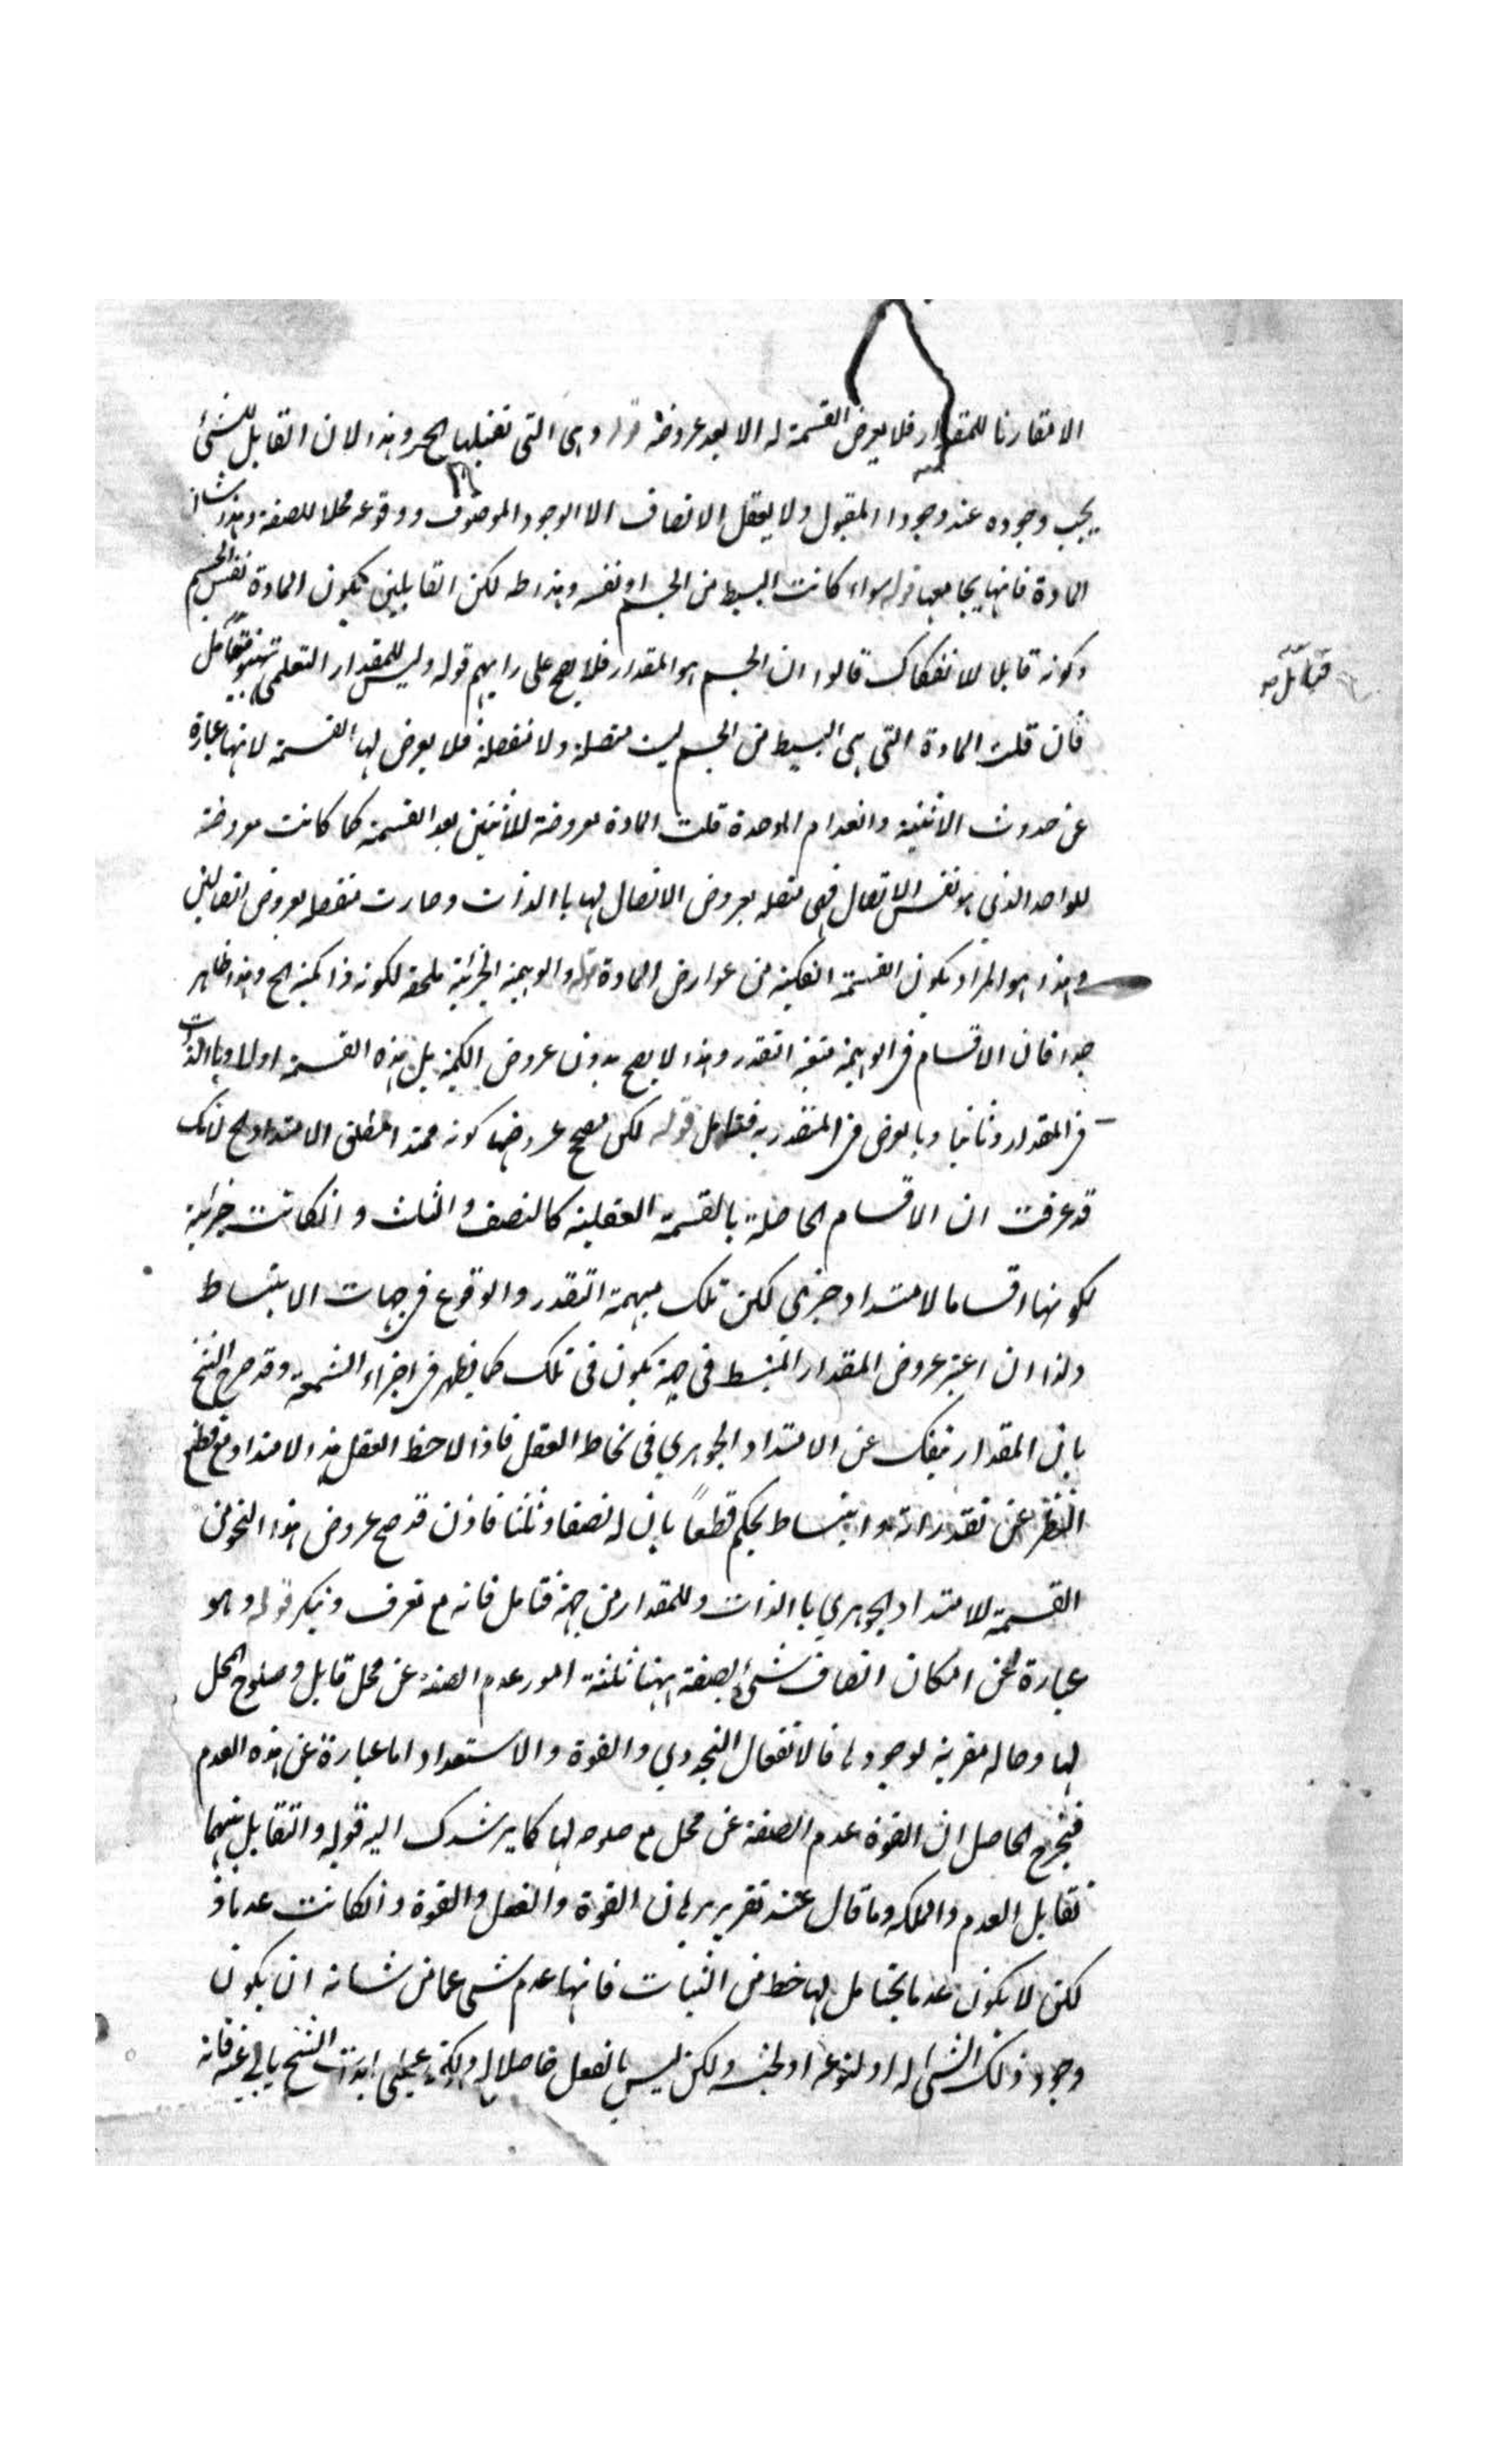 الا مقارنا للمقدار فلا يعرض القسمة له الا بعد عروضه قوله وهى التى تقبلها الخ وهذا لان القابل للشئ
يجب وجوده عند وجود المقبول ولا يعقل الاتصاف الا الوجود الموصوف ووقوعه محلا للصفة وهذا شان
المادة فانها يجامعها قوله سواء كانت البسيط من الجسم او نفسه وهذا لكن القايلين بكون المادة نفس الجسم
وكونه قابلا للانفكاك قالوا ان الجسم هو المقدار فلا يصح على رايهم قوله وليس للمقدار التعلمى فتامل
فتامل
فان قلت المادة التى هى البسيط من الجسم ليست متصلة ولا منفصلة فلا يعرض لها القسمة لانها عبارة
عن حدوث الاثنينية وانعدام الوحدة قلت المادة معروضة للاثنين بعد القسمة كما كانت معروضة
للواحد الذي هو نفس الاتصال فهى متصلة بعروض الاتصال لها باالذات وصارت منفصلة بعروض اتصالين
وهذا هو المراد بكون القسمة الفكية من عوارض المادة قوله والوهمية الجزائية ملحقة لكونه ذا كمية الخ وهذا ظاهر
جدا فان الاقسام فى الوهمية متعينة التقدر وهذا لا يصح بدون عروض الكمية بل هذه القسمة اولا وباالذات
فى المقدار وثانيا وبالعرض فى المتقدر به فتامل قوله لكن مصحح عروضها كونه ممتدا بمطلق الامتداد الخ لانك
قد عرفت ان الاقسام الحاصلة بالقسمة العقلية كالنصف والثلث وانكانت جزئية
لكونها اقساما لامتداد جزئى لكن تلك مبهمة التقدر والوقوع فى جهات الانبساط
ولذا ان اعتبر عروض المقدار المنبسط فى جهة يكون فى تلك كما يظهر فى اجزاء الشمعة وقد صرح الشيخ
بان المقدار ينفك عن الامتداد الجوهري فى لحاظ العقل فاذا لاحظ العقل هذا الامتداد مع قطع
النظر عن تقدراته وانبساط يحكم قطعاً بان له نصفا وثلثا فاذن قد صح عروض هذا النحو من
القسمة للامتداد الجوهري باالذات وللمقدار من جهة فتامل فانه مع تعرف وتنكر قوله وهو
عبارة عن امكان اتصاف شئ بصفة ههنا ثلثة امور عدم الصفة عن محل قابل وصلوح المحل
لها وحالة مقربة لوجود لها فالانفعال التجددي والقوة والاستعداد اما عبارة عن هذه العدم
فيخرج الحاصل ان القوة عدم الصفة عن محل مع صلوحه لها كما يرشدك اليه قوله والتقابل بينهما
تقابل العدم والملكة وما قال عند تقريره لان القوة والفعل والقوة وانكانت عدما
لكن لا يكون عدما بحتا بل لها حظ من الثبات فانها عدم شى عما من شانه ان يكون
وجود ذلك الشى له او لنوعه او لجنسه ولكن ليس بالفعل حاصلا له الشيخ فانه